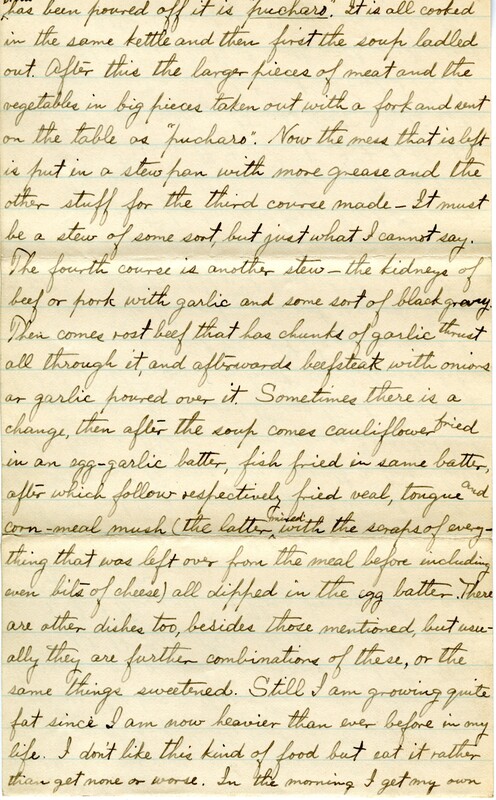 has been poured off it is "pucharo". It is all cooked
in the same kettle and then first the soup ladled
out. After this the larger pieces of meat and the
vegetables in big pieces taken out with a fork and sent
on the table as "pucharo". Now the mess that is left
is put in a stew pan with more grease and the
other stuff for the third course made – It must
be a stew of some sort, but just what I cannot say.
The fourth course is another stew – the kidneys of
beef or pork with garlic and some sort of black gravy.
Then comes rost beef that has chunks of garlic thrust
all through it and afterwards beefsteak with onions
or garlic poured over it. Sometimes there is a
change, then after the soup comes cauliflower fried
in an egg-garlic batter, fish fried in same batter,
after which follow respectively fried veal, tongue and
corn-meal mush (the latter mixed with the scraps of every-
thing that was left over from the meal before including
even bits of cheese) all dipped in the egg batter. There
are other dishes too, besides those mentioned, but usu-
ally they are further combinations of these, or the
same things sweetened. Still I am growing quite
fat since I am now heavier than ever before in my
life. I don't like this kind of food but eat it rather
than get none or worse. In the morning I get my own